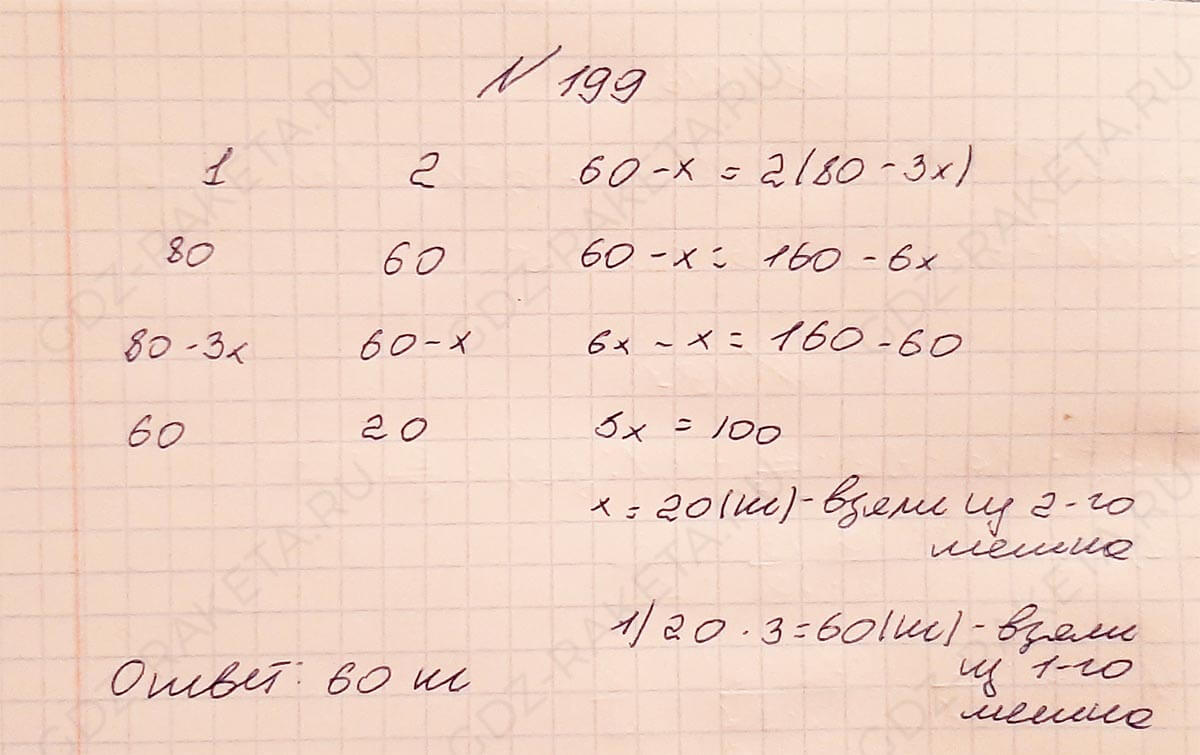 N 199
1 2 60 - x = 2(80 - 3x)
80 60 60 - x = 160 - 6x
80 - 3x 60 - x 6x - x = 160 - 60
60 20 5x = 100
x = 20(кг) - взяли из 2-го
мешка
1) 20 · 3 = 60(кг) - взяли
из 1-го
мешка
Ответ: 60 кг
GDZ-RAKETA.RU